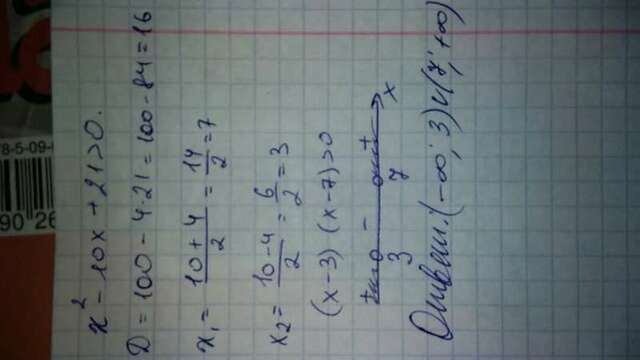 x² - 10x + 21 > 0.
D = 100 - 4·21 = 100 - 84 = 16
x₁ = (10+4)/2 = 14/2 = 7
x₂ = (10-4)/2 = 6/2 = 3
(x-3)(x-7)>0
+ - + x
3 7
Ответ: (-∞; 3)∪(7; +∞)
8-5-09-0
90 26